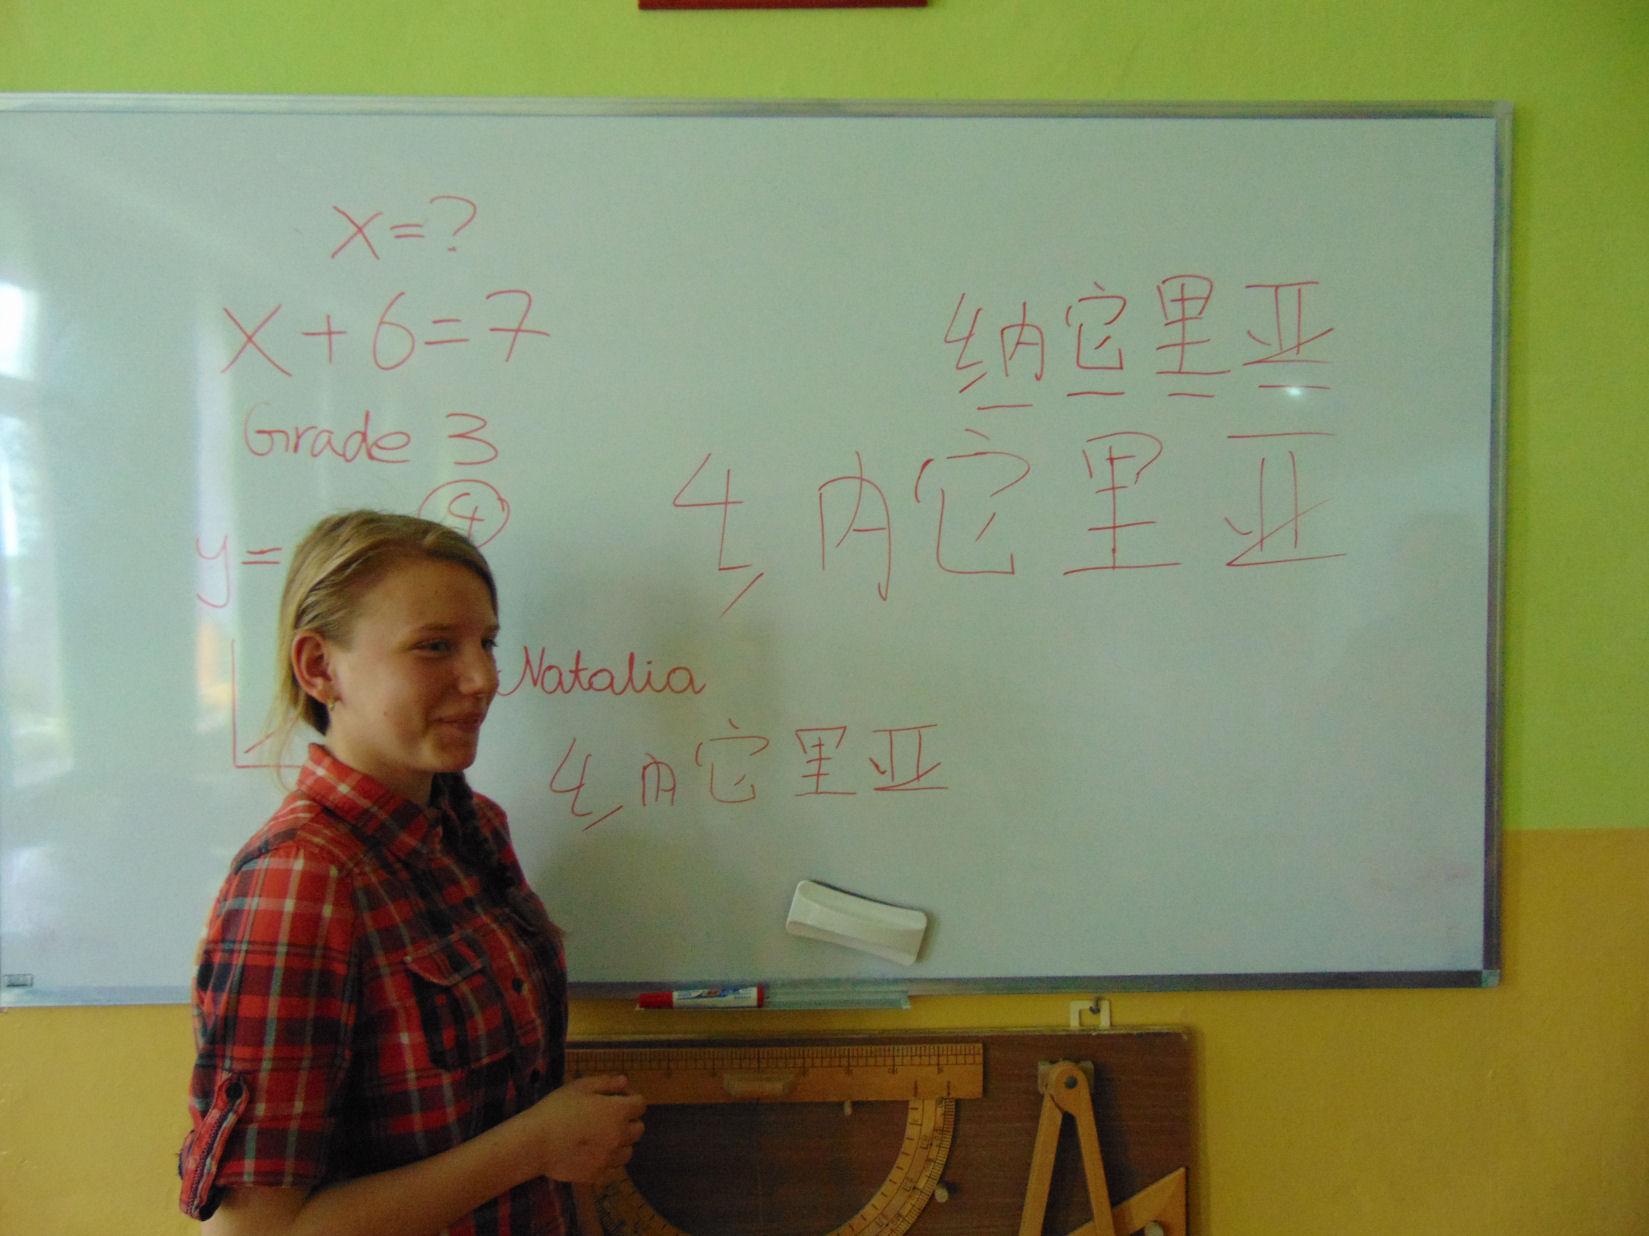 x=?
x+6=7
Grade 3
4
y=
纳它里亚
纳它里亚
Natalia
纳它里亚